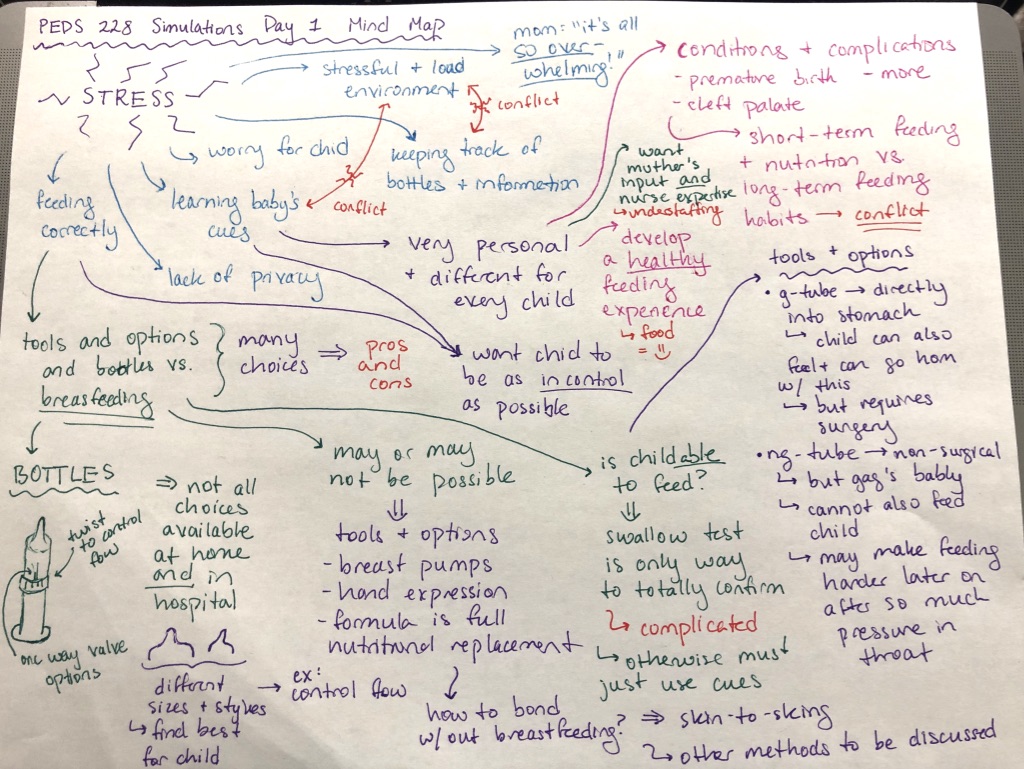 PEDS 228 Simulations Day 1 Mind Map
STRESS
mom: "it's all
so over-
whelming!"
stressful + load
environment
conflict
keeping track of
bottles + information
worry for chid
learning baby's
cues
conflict
feeding
correctly
lack of privacy
very personal
+ different for
every child
want chid to
be as in control
as possible
conditions + complications
- premature birth - more
- cleft palate
short-term feeding
+ nutrition vs.
long-term feeding
habits → conflict
want
mother's
input and
nurse expertise
↳ understaffing
develop
a healthy
feeding
experience
↳ food
= :)
tools and options
and bottles vs.
breasfeeding
many
choices
⇒ pros
and
cons
BOTTLES
twist
to control
flow
one way valve
options
⇒ not all
choices
available
at home
and in
hospital
different
sizes + styles
↳ find best
for child
→ ex:
control flow
may or may
not be possible
⇓
tools + options
- breast pumps
- hand expression
- formula is full
nutritional replacement
how to bond
w/out breastfeeding?
⇒ skin-to-sking
↳ other methods to be discussed
is child able
to feed?
⇓
swallow test
is only way
to totally confirm
↳ complicated
↳ otherwise must
just use cues
tools + options
• g-tube → directly
into stomach
↳ child can also
feel + can go hom
w/ this
↳ but requires
surgery
• ng-tube → non-surgical
↳ but gag's bably
↳ cannot also feed
child
↳ may make feeding
harder later on
after so much
pressure in
throat